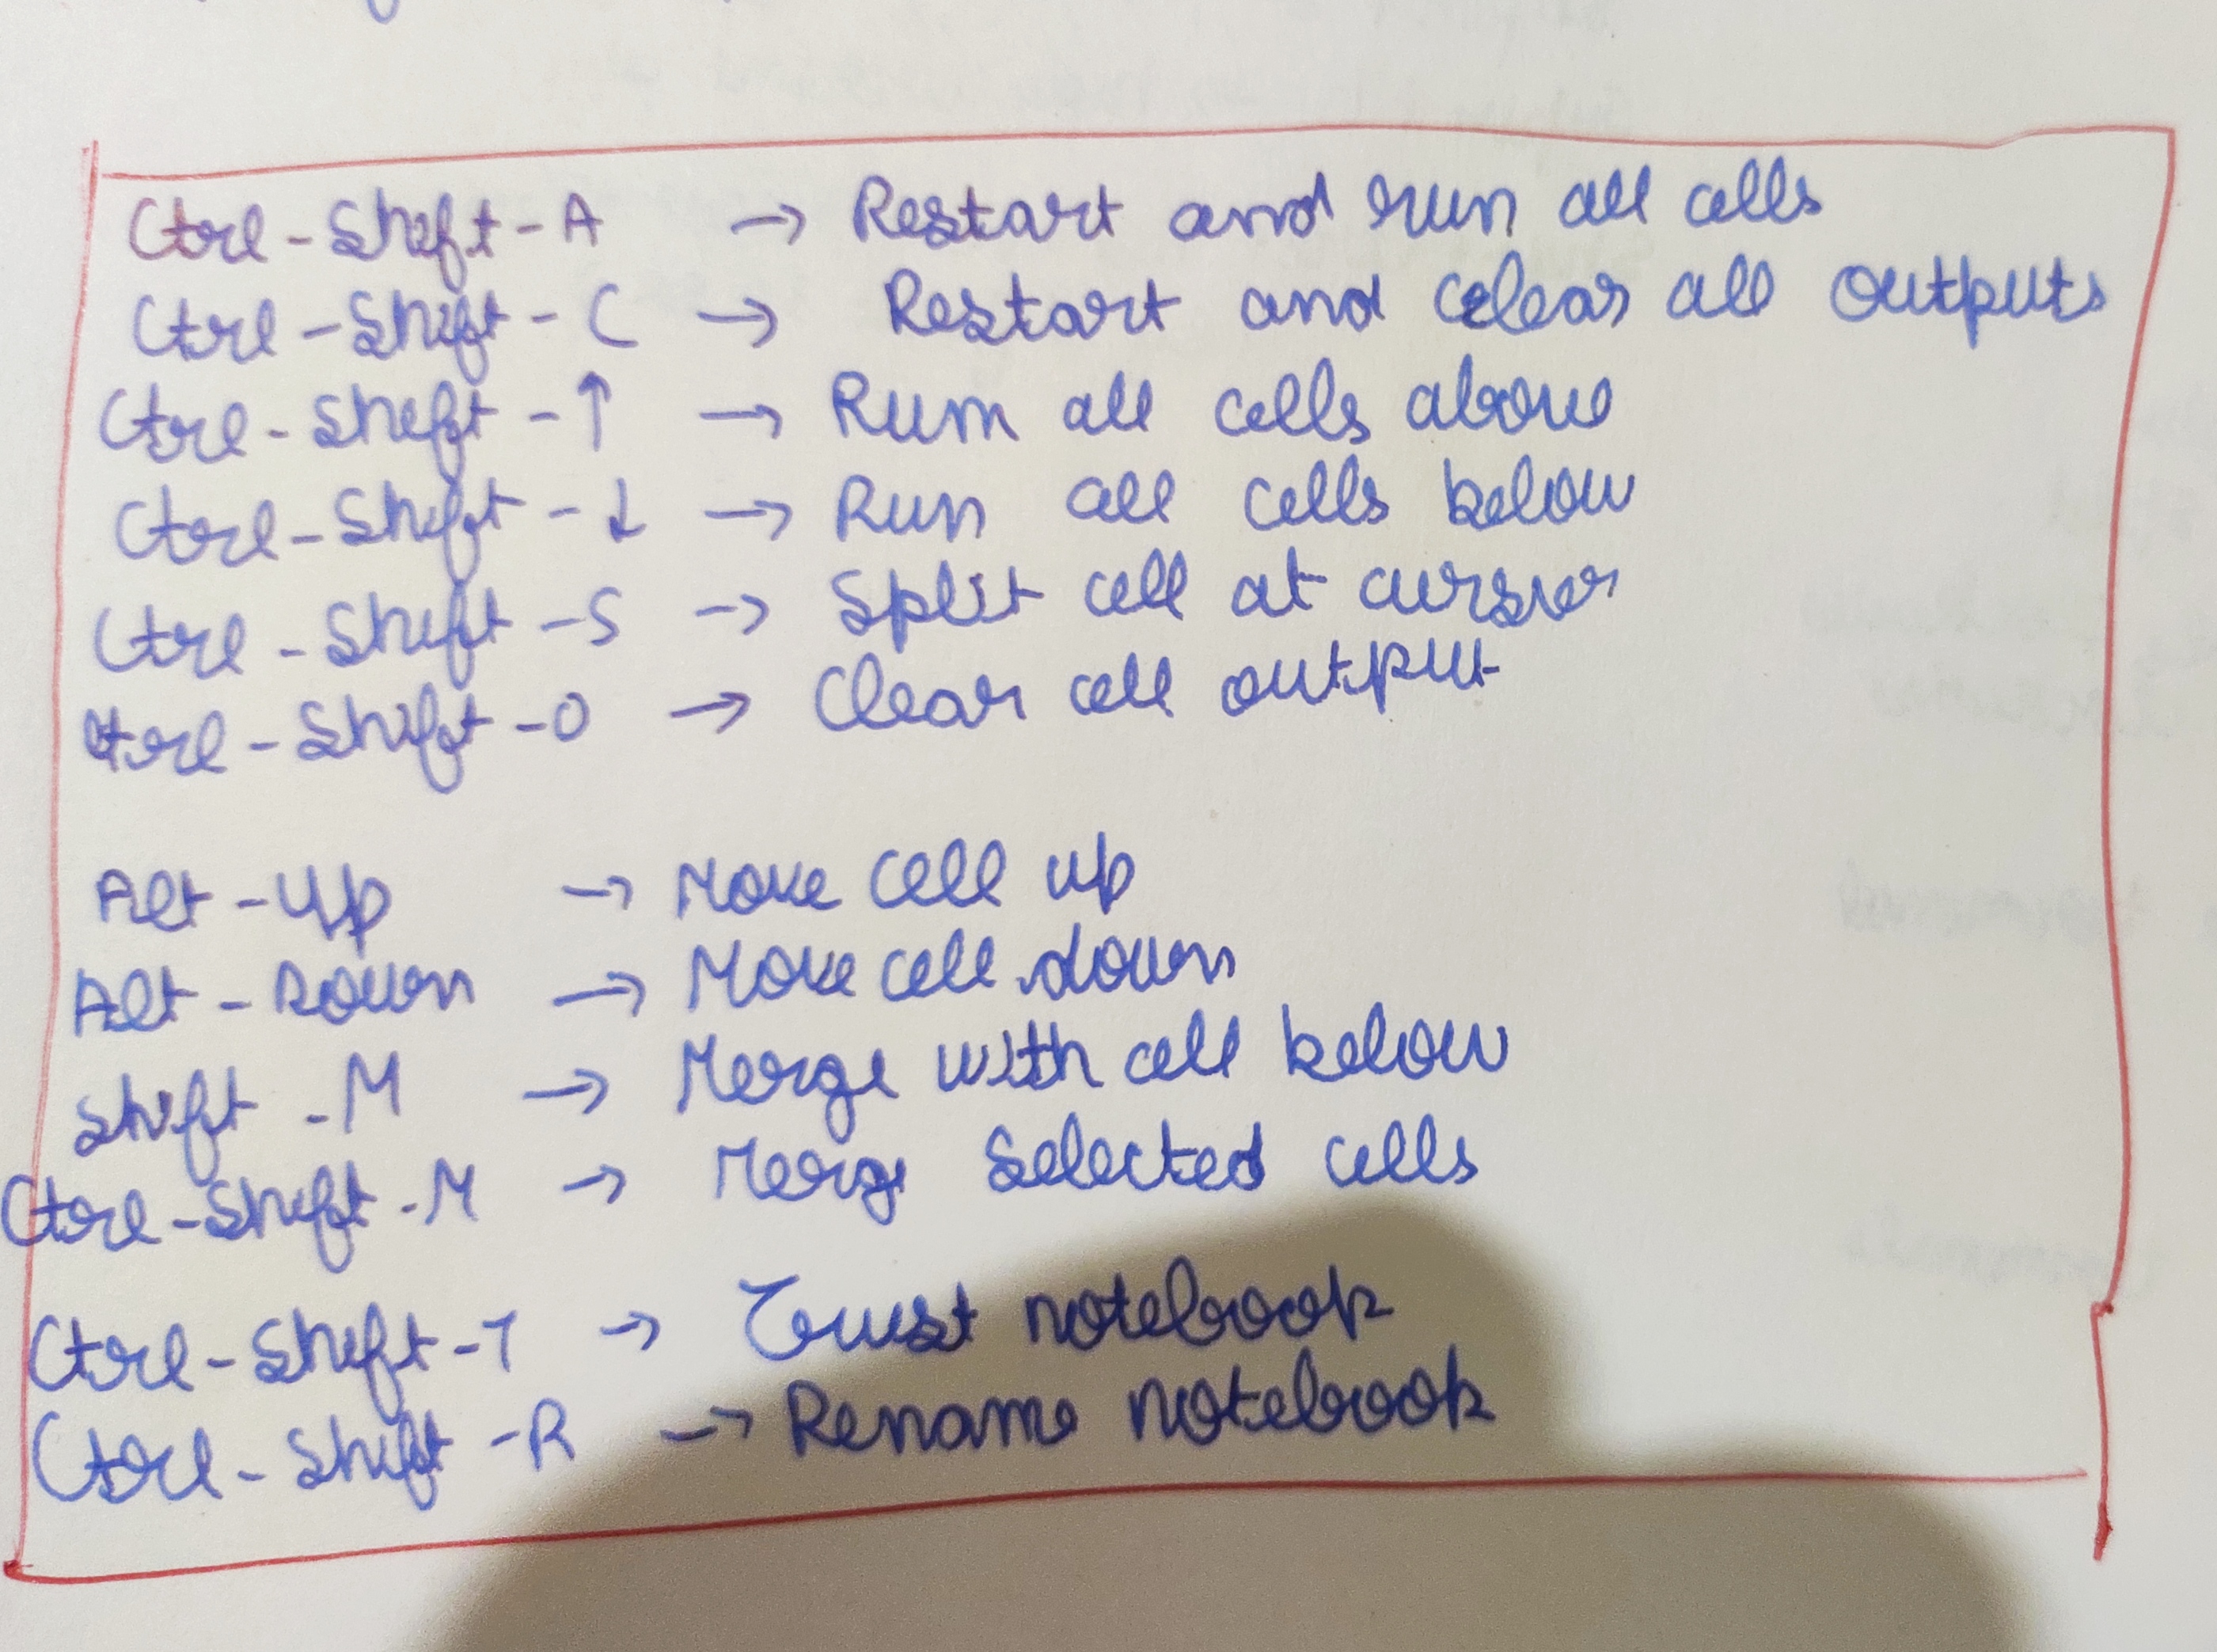 Ctrl - Shift - A → Restart and run all cells
Ctrl - Shift - C → Restart and clear all outputs
Ctrl - Shift - ↑ → Run all cells above
Ctrl - Shift - ↓ → Run all cells below
Ctrl - Shift - S → Split cell at cursor
Ctrl - Shift - O → Clear cell output
Alt - Up → Move cell up
Alt - Down → Move cell down
Shift - M → Merge with cell below
Ctrl - Shift - M → Merge selected cells
Ctrl - Shift - T → Trust notebook
Ctrl - Shift - R → Rename notebook